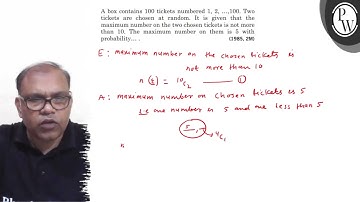 A box contains 100 tickets numbered 1, 2, ...,100. Two
tickets are chosen at random. It is given that the
maximum number on the two chosen tickets is not more
than 10. The maximum number on them is 5 with
probability... .
(1985, 2M)
E : maximum number on the chosen tickets is
not more than 10
n(E) = ¹⁰C₂ ——— ①
A : maximum number on chosen tickets is 5
i.e one number is 5 and one less than 5
5, → ⁴C₁
n